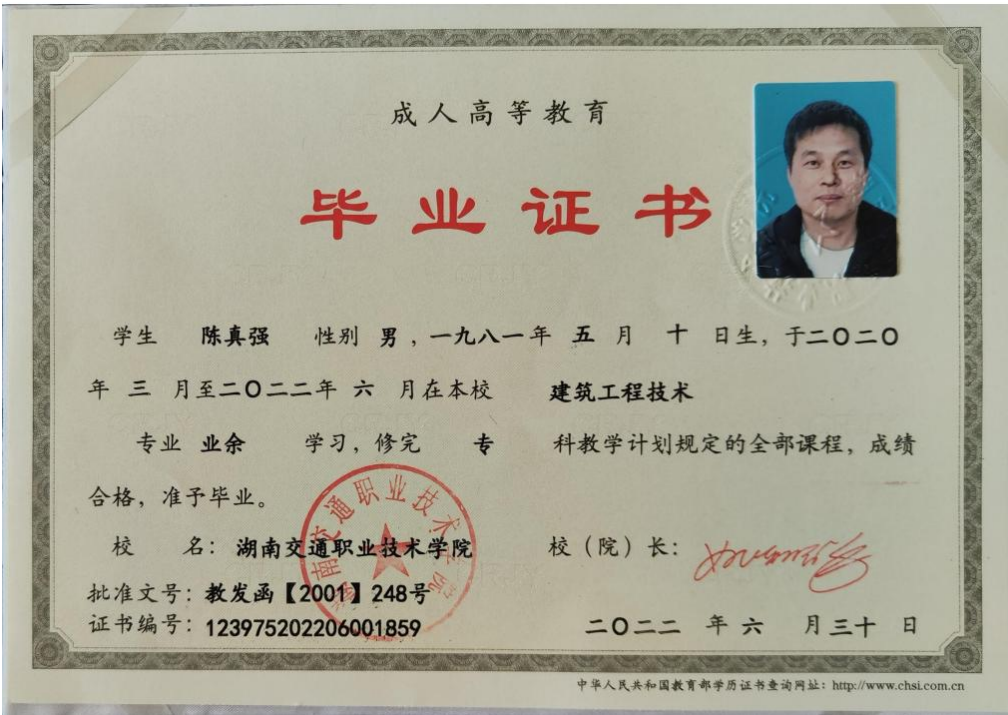 成人高等教育
毕业证书
学生 陈真强 性别 男，一九八一年 五 月 十 日生，于二〇二〇
年 三 月至二〇二二年 六 月在本校 建筑工程技术
专业 业余 学习，修完 专 科教学计划规定的全部课程，成绩
合格，准予毕业。
校 名：湖南交通职业技术学院 校（院）长：
批准文号：教发函【2001】248号
证书编号：123975202206001859 二〇二二 年 六 月三十 日
湖南交通职业技术学院
中华人民共和国教育部学历证书查询网址：http://www.chsi.com.cn